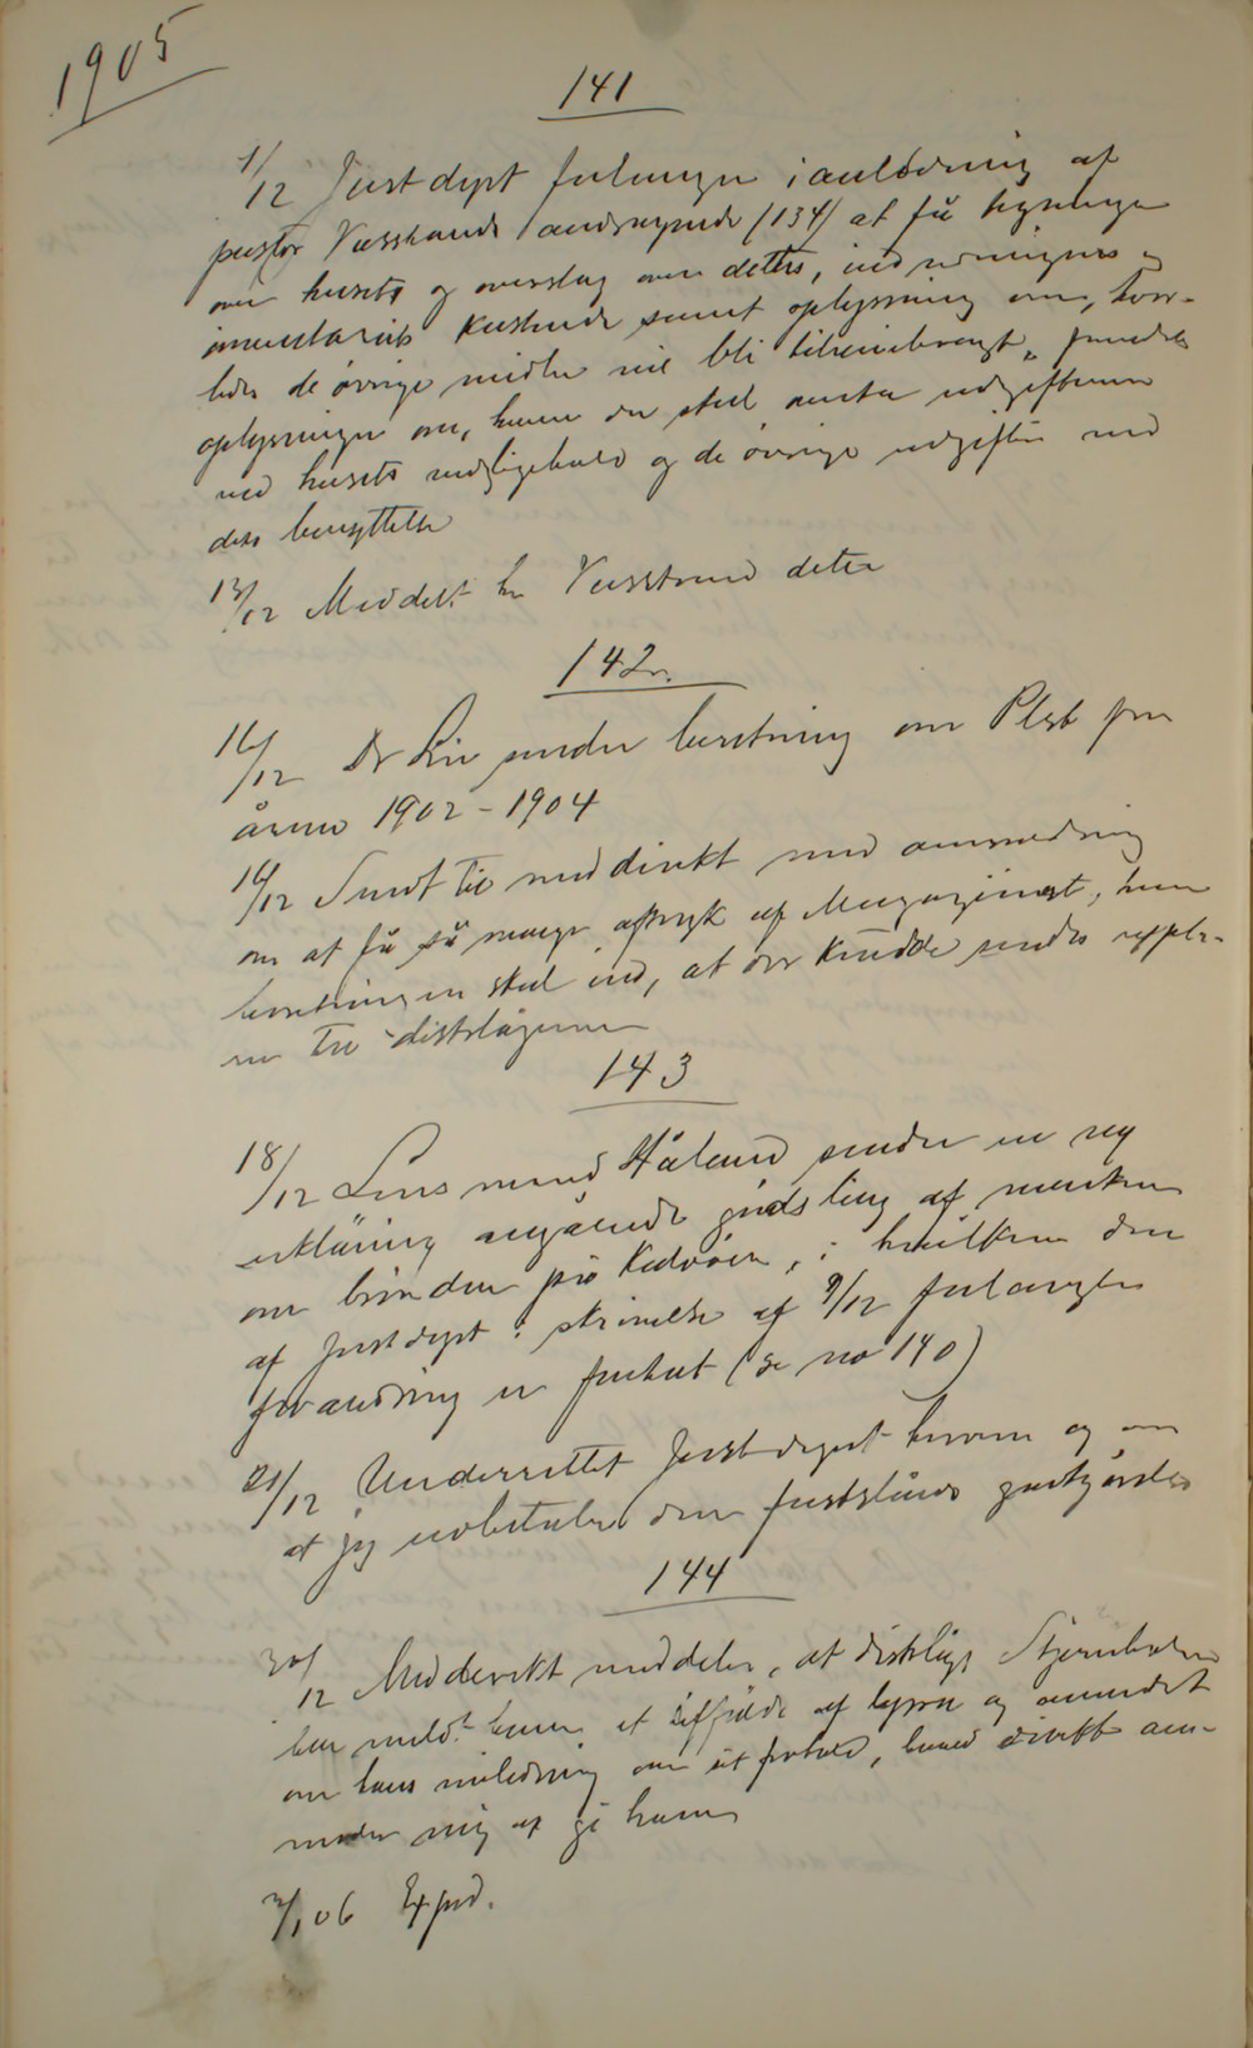 1905
141
1/12 Justdept forlanger i anledning af
pastor Vasstrands andragende (134) at få tegninger
over husets og overslag over dettes, indredningens og
inventariets kostende samt oplysning om, hvor-
ledes de øvrige midler vil bli tilveiebragt, fremdeles
oplysninger om, hvem der skal avta udgifterne
ved husets vedligehold og de øvrige udgifter ved
dets benyttelse
13/12 Meddelt hr Vasstrand dette
142.
16/12 Dr Lie sender beretning om Plst for
årene 1902-1904
16/12 Sendt til meddirekt med anmodning
om at få så mange aftryk af Magazinet, hvor
beretningen skal ind, at der kunde sendes exempla-
rer til distrlægerne
143
18/12 Lensmand Håland sender en ny
erklæring angående gjødsling af marken
om brønden på Kalvøen, i hvilken den
af Justdept i skrivelse af 9/12 forlangte
forandring er foretat (se no 140)
21/12 Underrettet Justdept herom og om
at jeg udbetaler den fastslåede godtgjørelse
144
30/12 Meddirekt meddeler, at distrlæge Stjernholm
har meldt ham et tilfælde af lepra og anmodet
om hans veiledning om sit forhold, hvad direkt an-
moder mig at gi ham
2/1 06 Exped.